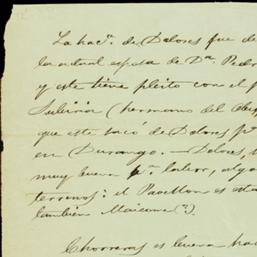 La hacᵃ. de Dolores fue de
la actual esposa de Dⁿ. Pedr
y este tiene pleito con el p
Subiría (hermano del Obis
que este sacó de Dolores pᵃ
en Durango. — Dolores,
muy buena pᵃ. labor, algo
terrenos: el Pavellon es
tambien Maicona (?).
Chorreras es buena hac